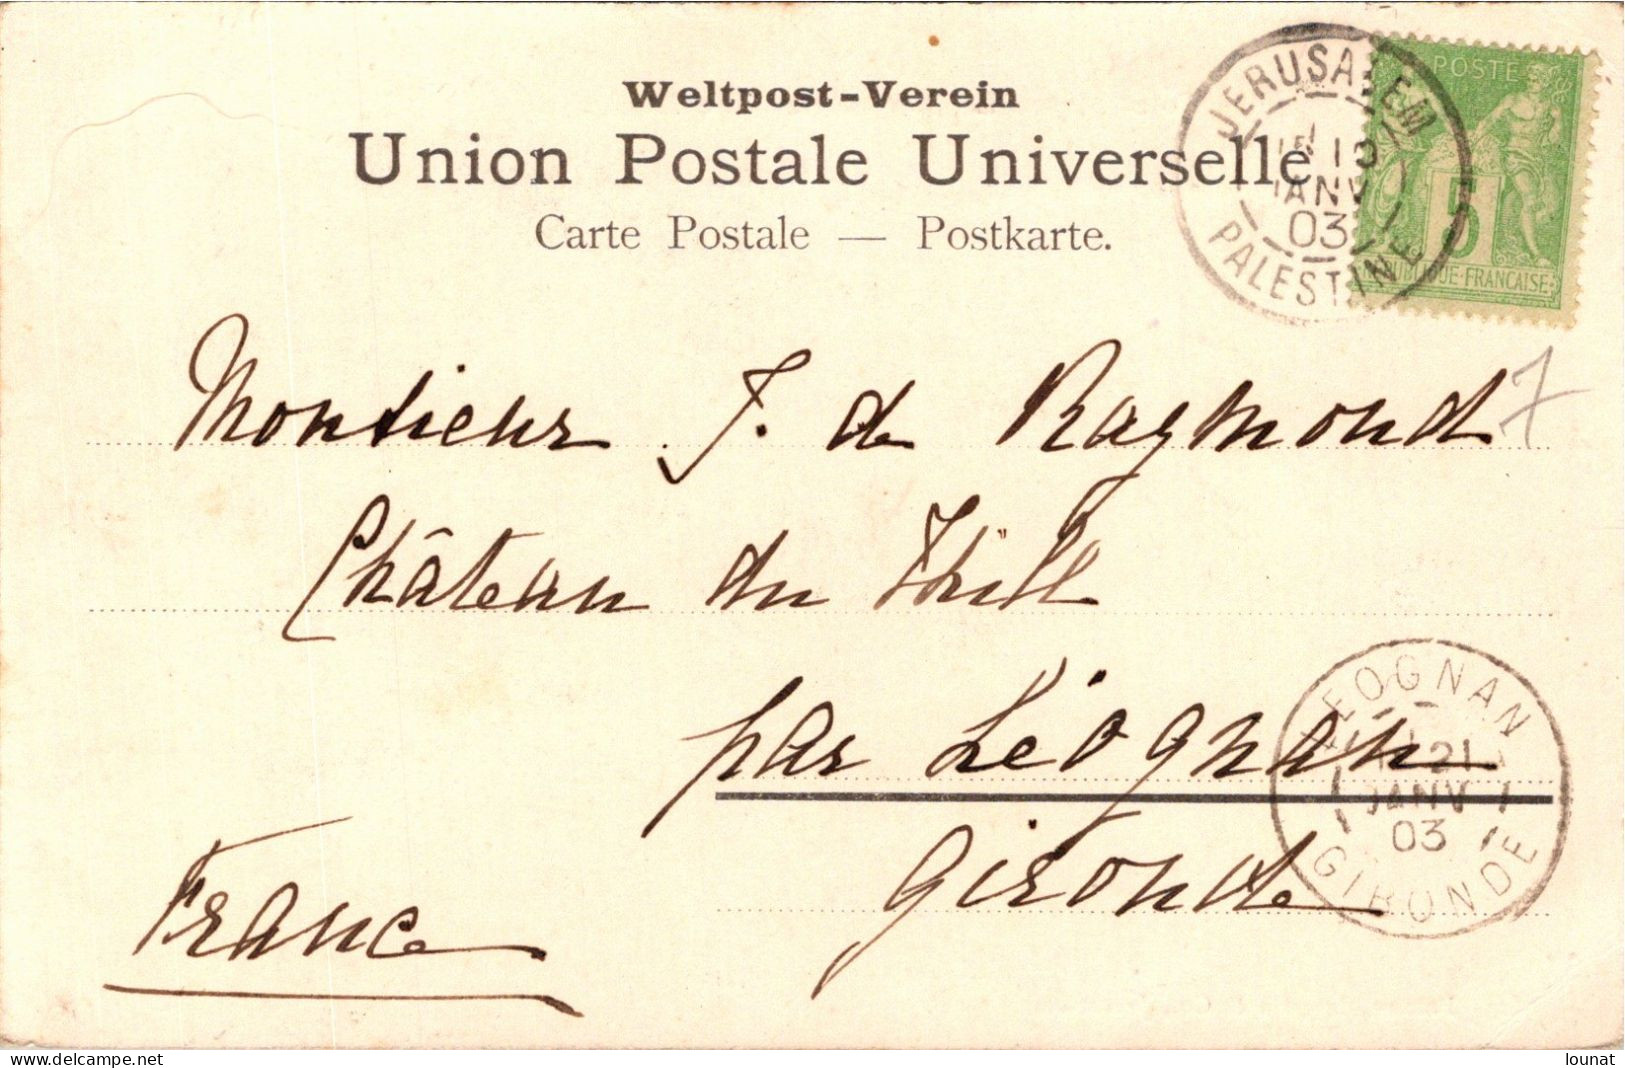 Weltpost-Verein
Union Postale Universelle
Carte Postale — Postkarte.
JERUSALEM
JANV
03
PALESTINE
POSTE
5
REPUBLIQUE FRANÇAISE
Monsieur J. de Raymond
7
Château du Thil
par Léognan
Gironde
France
LEOGNAN
21
JANV
03
GIRONDE
www.delcampe.net
lounat